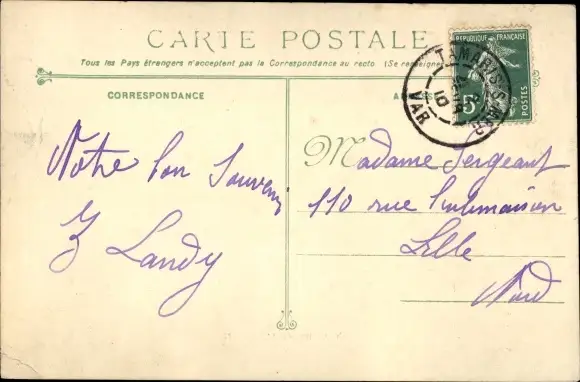 CARTE POSTALE
Tous les Pays étrangers n'acceptent pas la Correspondance au recto (Se renseigner
CORRESPONDANCE
Notre bon Souvenir
Landy
REPUBLIQUE FRANÇAISE
POSTES
5c
TAMARIS-S-MER
VAR
10
Madame Sergeant
110 rue
Lille
Nord